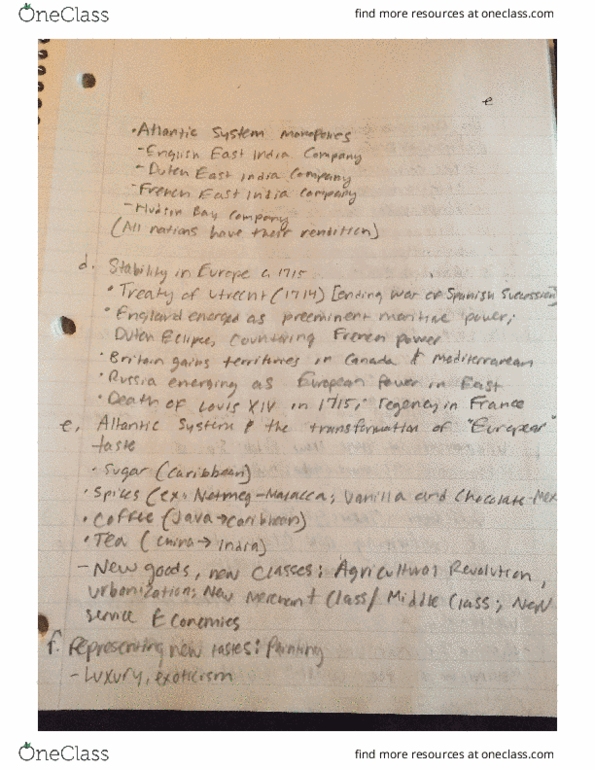 OneClass
find more resources at oneclass.com
e
• Atlantic System monopolies
- English East India Company
- Dutch East India Company
- French East India Company
- Hudson Bay Company
(All nations have their rendition)
d. Stability in Europe c. 1715
• Treaty of Utrecht (1714) [ending War of Spanish Succession]
• England emerged as preeminent maritime power;
Dutch Eclipse, countering French power
• Britain gains territories in Canada & Mediterranean
• Russia emerging as European Power in East
• Death of Louis XIV in 1715; regency in France
e. Atlantic System & the transformation of "European"
taste
• Sugar (Caribbean)
• Spices (ex. Nutmeg-Malacca; Vanilla and Chocolate-Mex
• Coffee (Java→Caribbean)
• Tea (China→India)
- New goods, new classes: Agricultural Revolution,
urbanization; New Merchant Class/Middle Class; New
service Economies
f. Representing new tastes: Painting
- Luxury, exoticism
OneClass
find more resources at oneclass.com